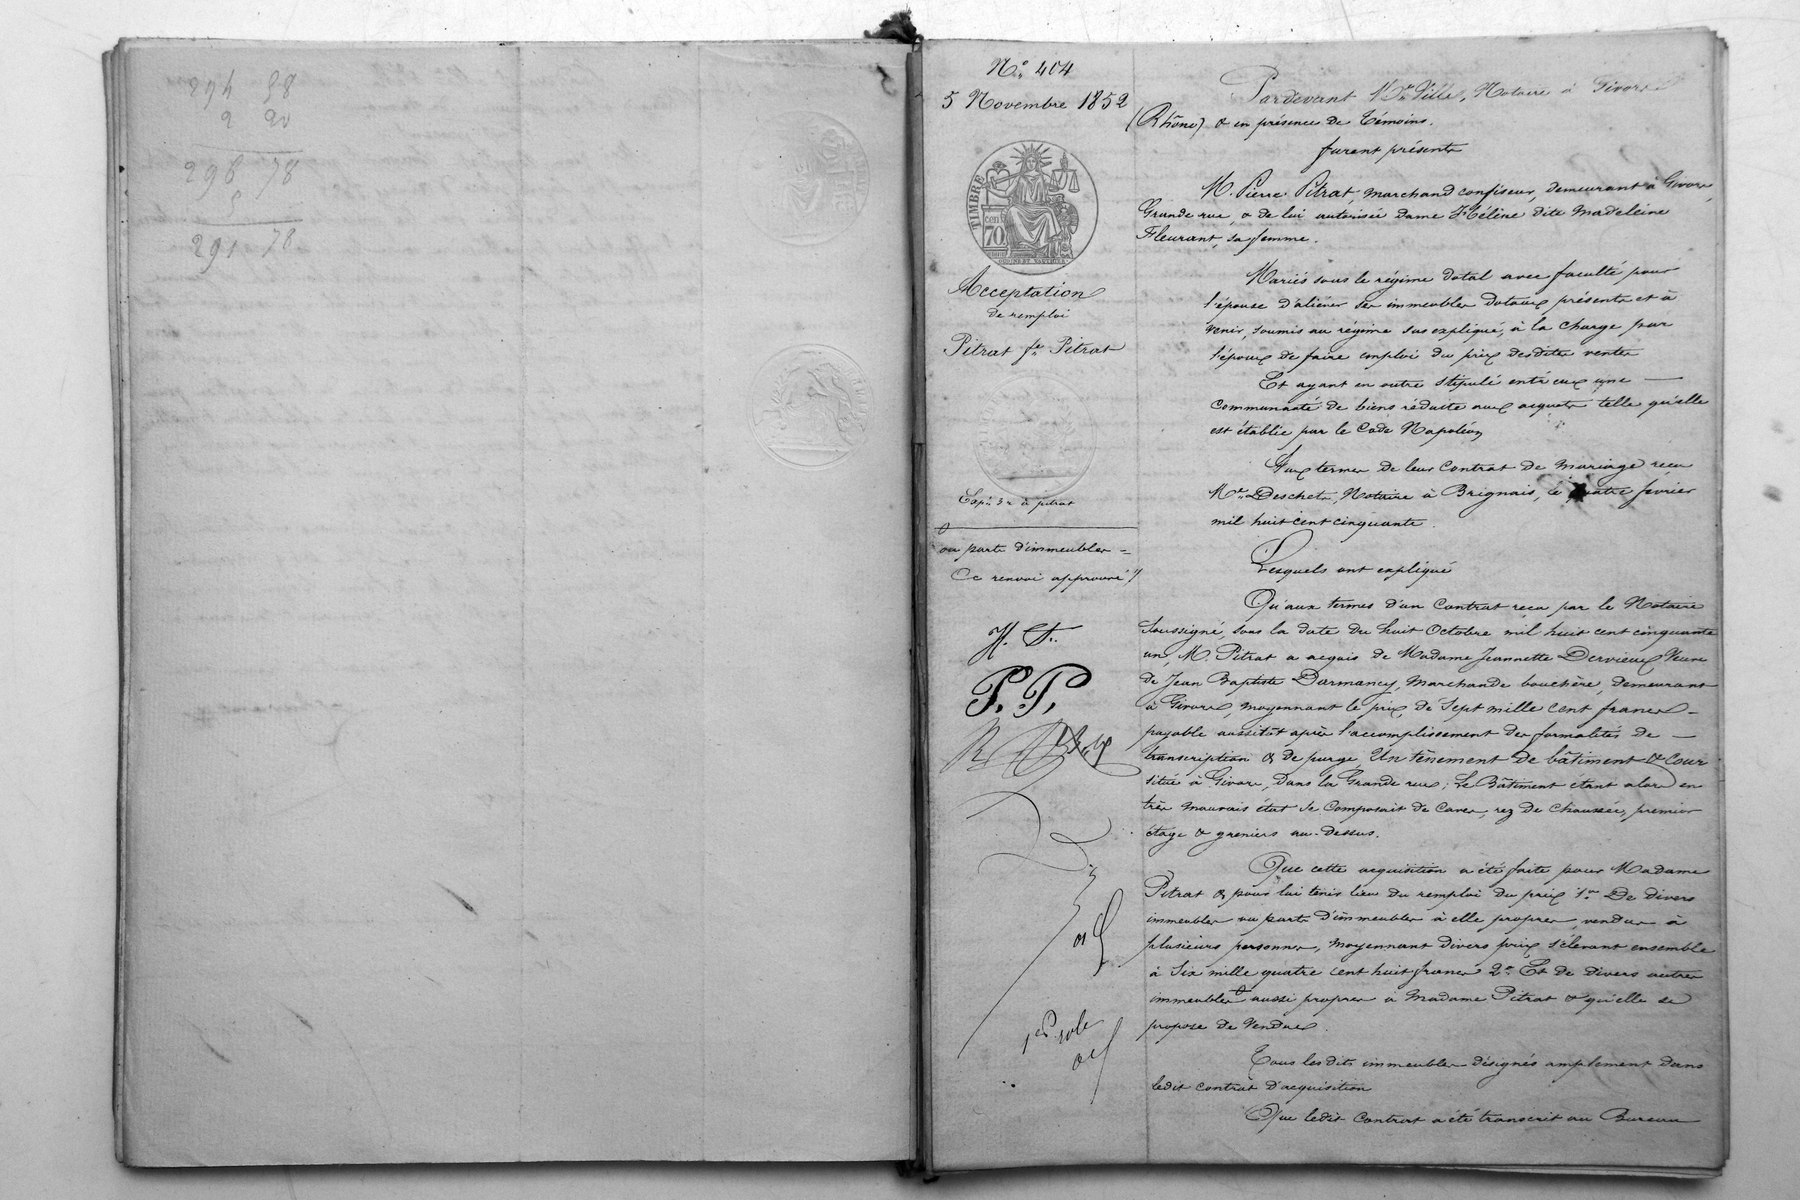 294 58
2 20
296 78
5
291 78
N° 404
5 Novembre 1852
TIMBRE
cen
70
Acceptation
de remploi
Pitrat fe Pitrat
à pitrat
ou parts d'immeubles =
Ce renvoi approuvé //
H. F.
P. P.
1er role
Pardevant Me Ville, Notaire à Givors
(Rhône) & en présence de Témoins.
furent présents
M. Pierre Pitrat, marchand confiseur, demeurant à Givors,
Grande rue, & de lui autorisée dame Hélène dite Madeleine
Fleurant, sa femme.
Mariés sous le régime dotal avec faculté pour
l'épouse d'aliéner ses immeubles dotaux présents et à
venir, soumis au régime sus expliqué, à la charge par
l'époux de faire emploi du prix desdites ventes
Et ayant en outre stipulé entr'eux une —
communauté de biens réduite aux acquets telle qu'elle
est établie par le Code Napoléon
Aux termes de leur Contrat de Mariage reçu
Me Deschets, Notaire à Brignais, le quatre fevrier
mil huit cent cinquante.
Lesquels ont expliqué
Qu'aux termes d'un Contrat reçu par le Notaire
Soussigné, sous la date du huit Octobre mil huit cent cinquante
un, M. Pitrat a acquis de Madame Jeannette Dervieux Veuve
de Jean Baptiste Darmancy, Marchande bouchère, demeurant
à Givors, moyennant le prix de Sept mille cent francs –
payable aussitôt après l'accomplissement des formalités de —
transcription & de purge, Un tènement de bâtiment & Cour
situé à Givors, dans la Grande rue; Le Bâtiment étant alors en
très mauvais état se Composait de Caves, rez de Chaussée, premier
étage & greniers au-dessus.
Que cette acquisition a été faite pour Madame
Pitrat & pour lui tenir lieu du remploi du prix 1° De divers
immeubles ou parts d'immeubles à elle propres, vendus à
plusieurs personnes, moyennant divers prix s'élevant ensemble
à Six mille quatre cent huit francs 2° Et de divers autres
immeubles aussi propres à Madame Pitrat & qu'elle se
propose de Vendre.
Tous lesdits immeubles désignés amplement dans
ledit contrat d'acquisition
Que ledit Contrat a été transcrit au Bureau